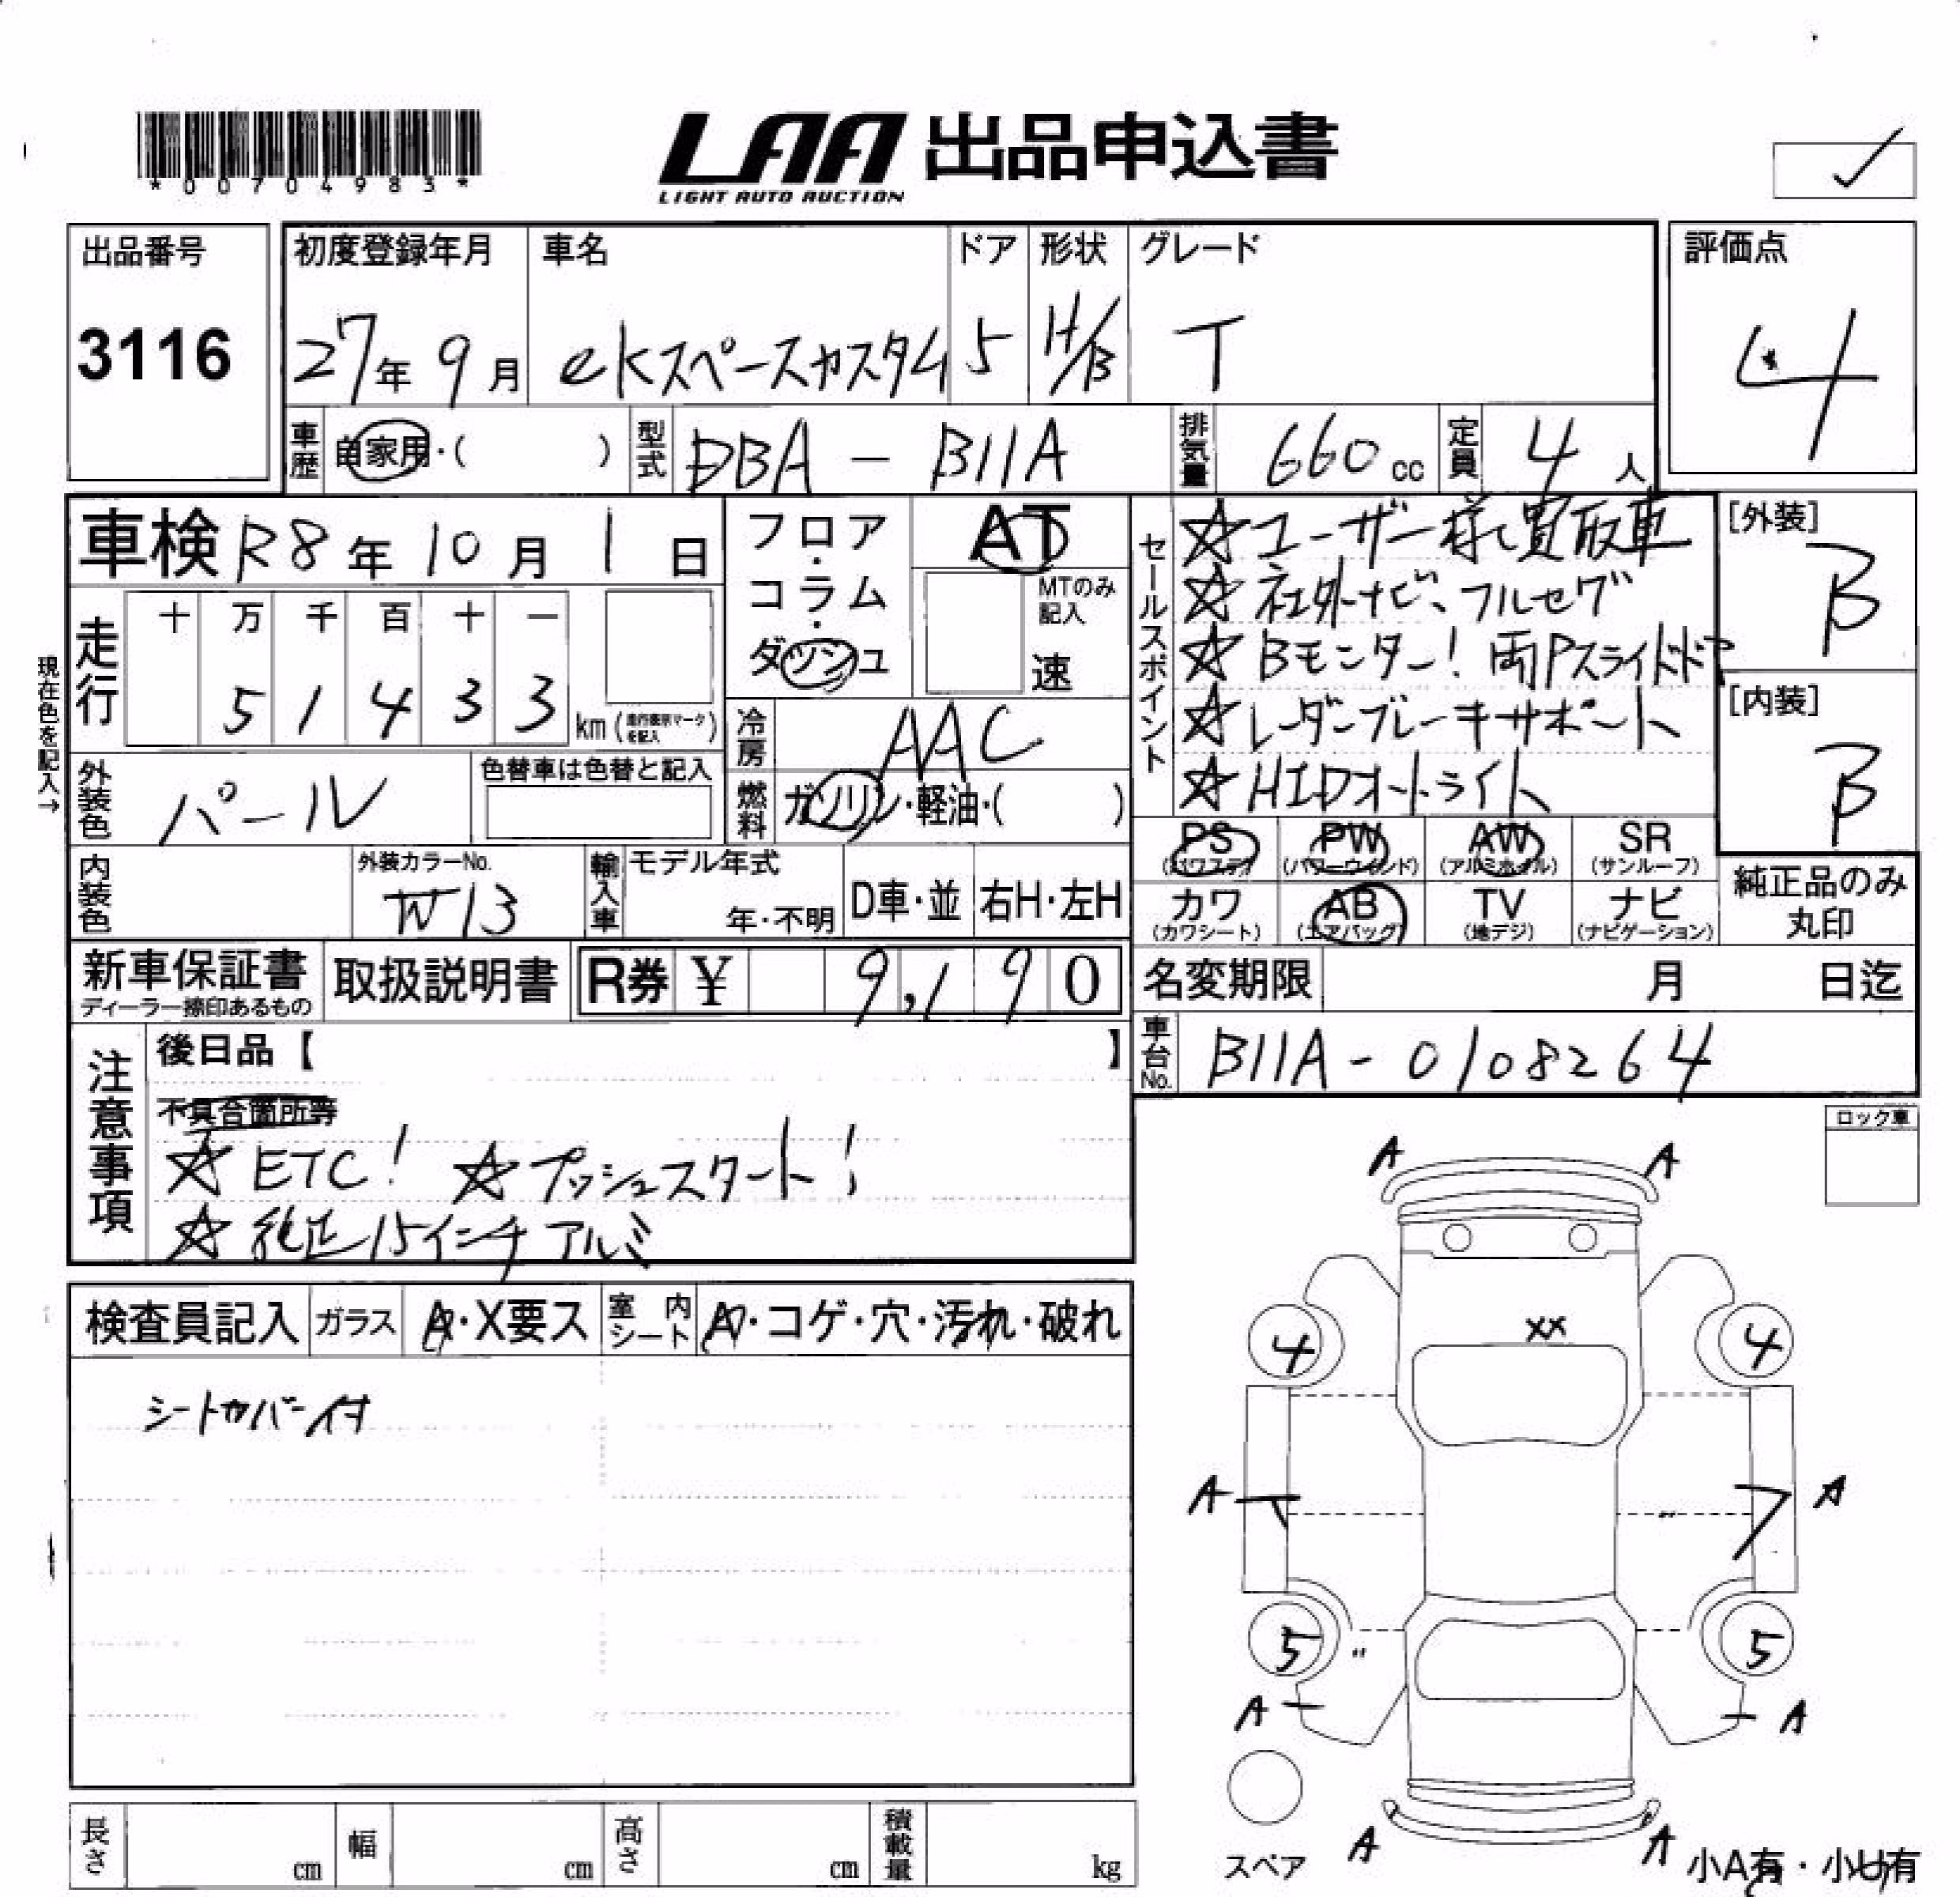 *00704983*
LAA 出品申込書
LIGHT AUTO AUCTION
出品番号
3116
初度登録年月
27年 9月
車名
ekスペースカスタム
ドア
5
形状
H/B
グレード
T
評価点
4
車歴 自家用・( )
型式 DBA - B11A
排気量 660cc
定員 4人
車検 R8年10月1日
現在色を記入→
走行
十 万 千 百 十 一
5 1 4 3 3 km(走行表示マークを記入)
フロア・コラム・ダッシュ
AT
MTのみ記入
速
冷房 AAC
燃料 ガソリン・軽油・( )
外装色 パール
色替車は色替と記入
内装色
外装カラーNo.
W13
輸入車
モデル年式
年・不明
D車・並
右H・左H
セールスポイント
☆ユーザー様買取車
☆社外ナビ、フルセグ
☆Bモニター! 両Pスライドドア
☆レーダーブレーキサポート
☆HIDオートライト
[外装]
B
[内装]
B
PS (パワステ)
PW (パワーウインド)
AW (アルミホイル)
SR (サンルーフ)
カワ (カワシート)
AB (エアバッグ)
TV (地デジ)
ナビ (ナビゲーション)
純正品のみ丸印
新車保証書
ディーラー捺印あるもの
取扱説明書
R券 ¥ 9,190
名変期限 月 日迄
車台No. B11A-0108264
注意事項
後日品【 】
不具合箇所等
☆ETC! ☆プッシュスタート!
☆純正15インチアルミ
ロック車
検査員記入
ガラス A・X要ス
室内シート A・コゲ・穴・汚れ・破れ
シートカバー付
A A
XX
4 4
A A
5 〃 5
A A
スペア
A A
小A有・小U有
長さ cm
幅 cm
高さ cm
積載量 kg